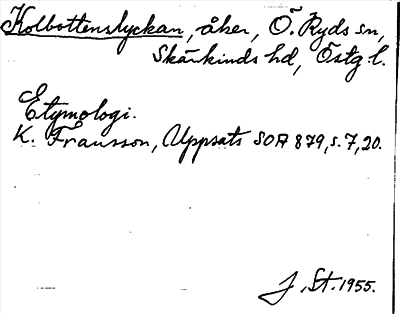 Kolbottenslyckan, åker, Ö. Ryds sn,
Skärkinds hd, Östg l.
Etymologi.
K. Fransson, Uppsats SOA 879, s. 7, 20.
J. St. 1955.